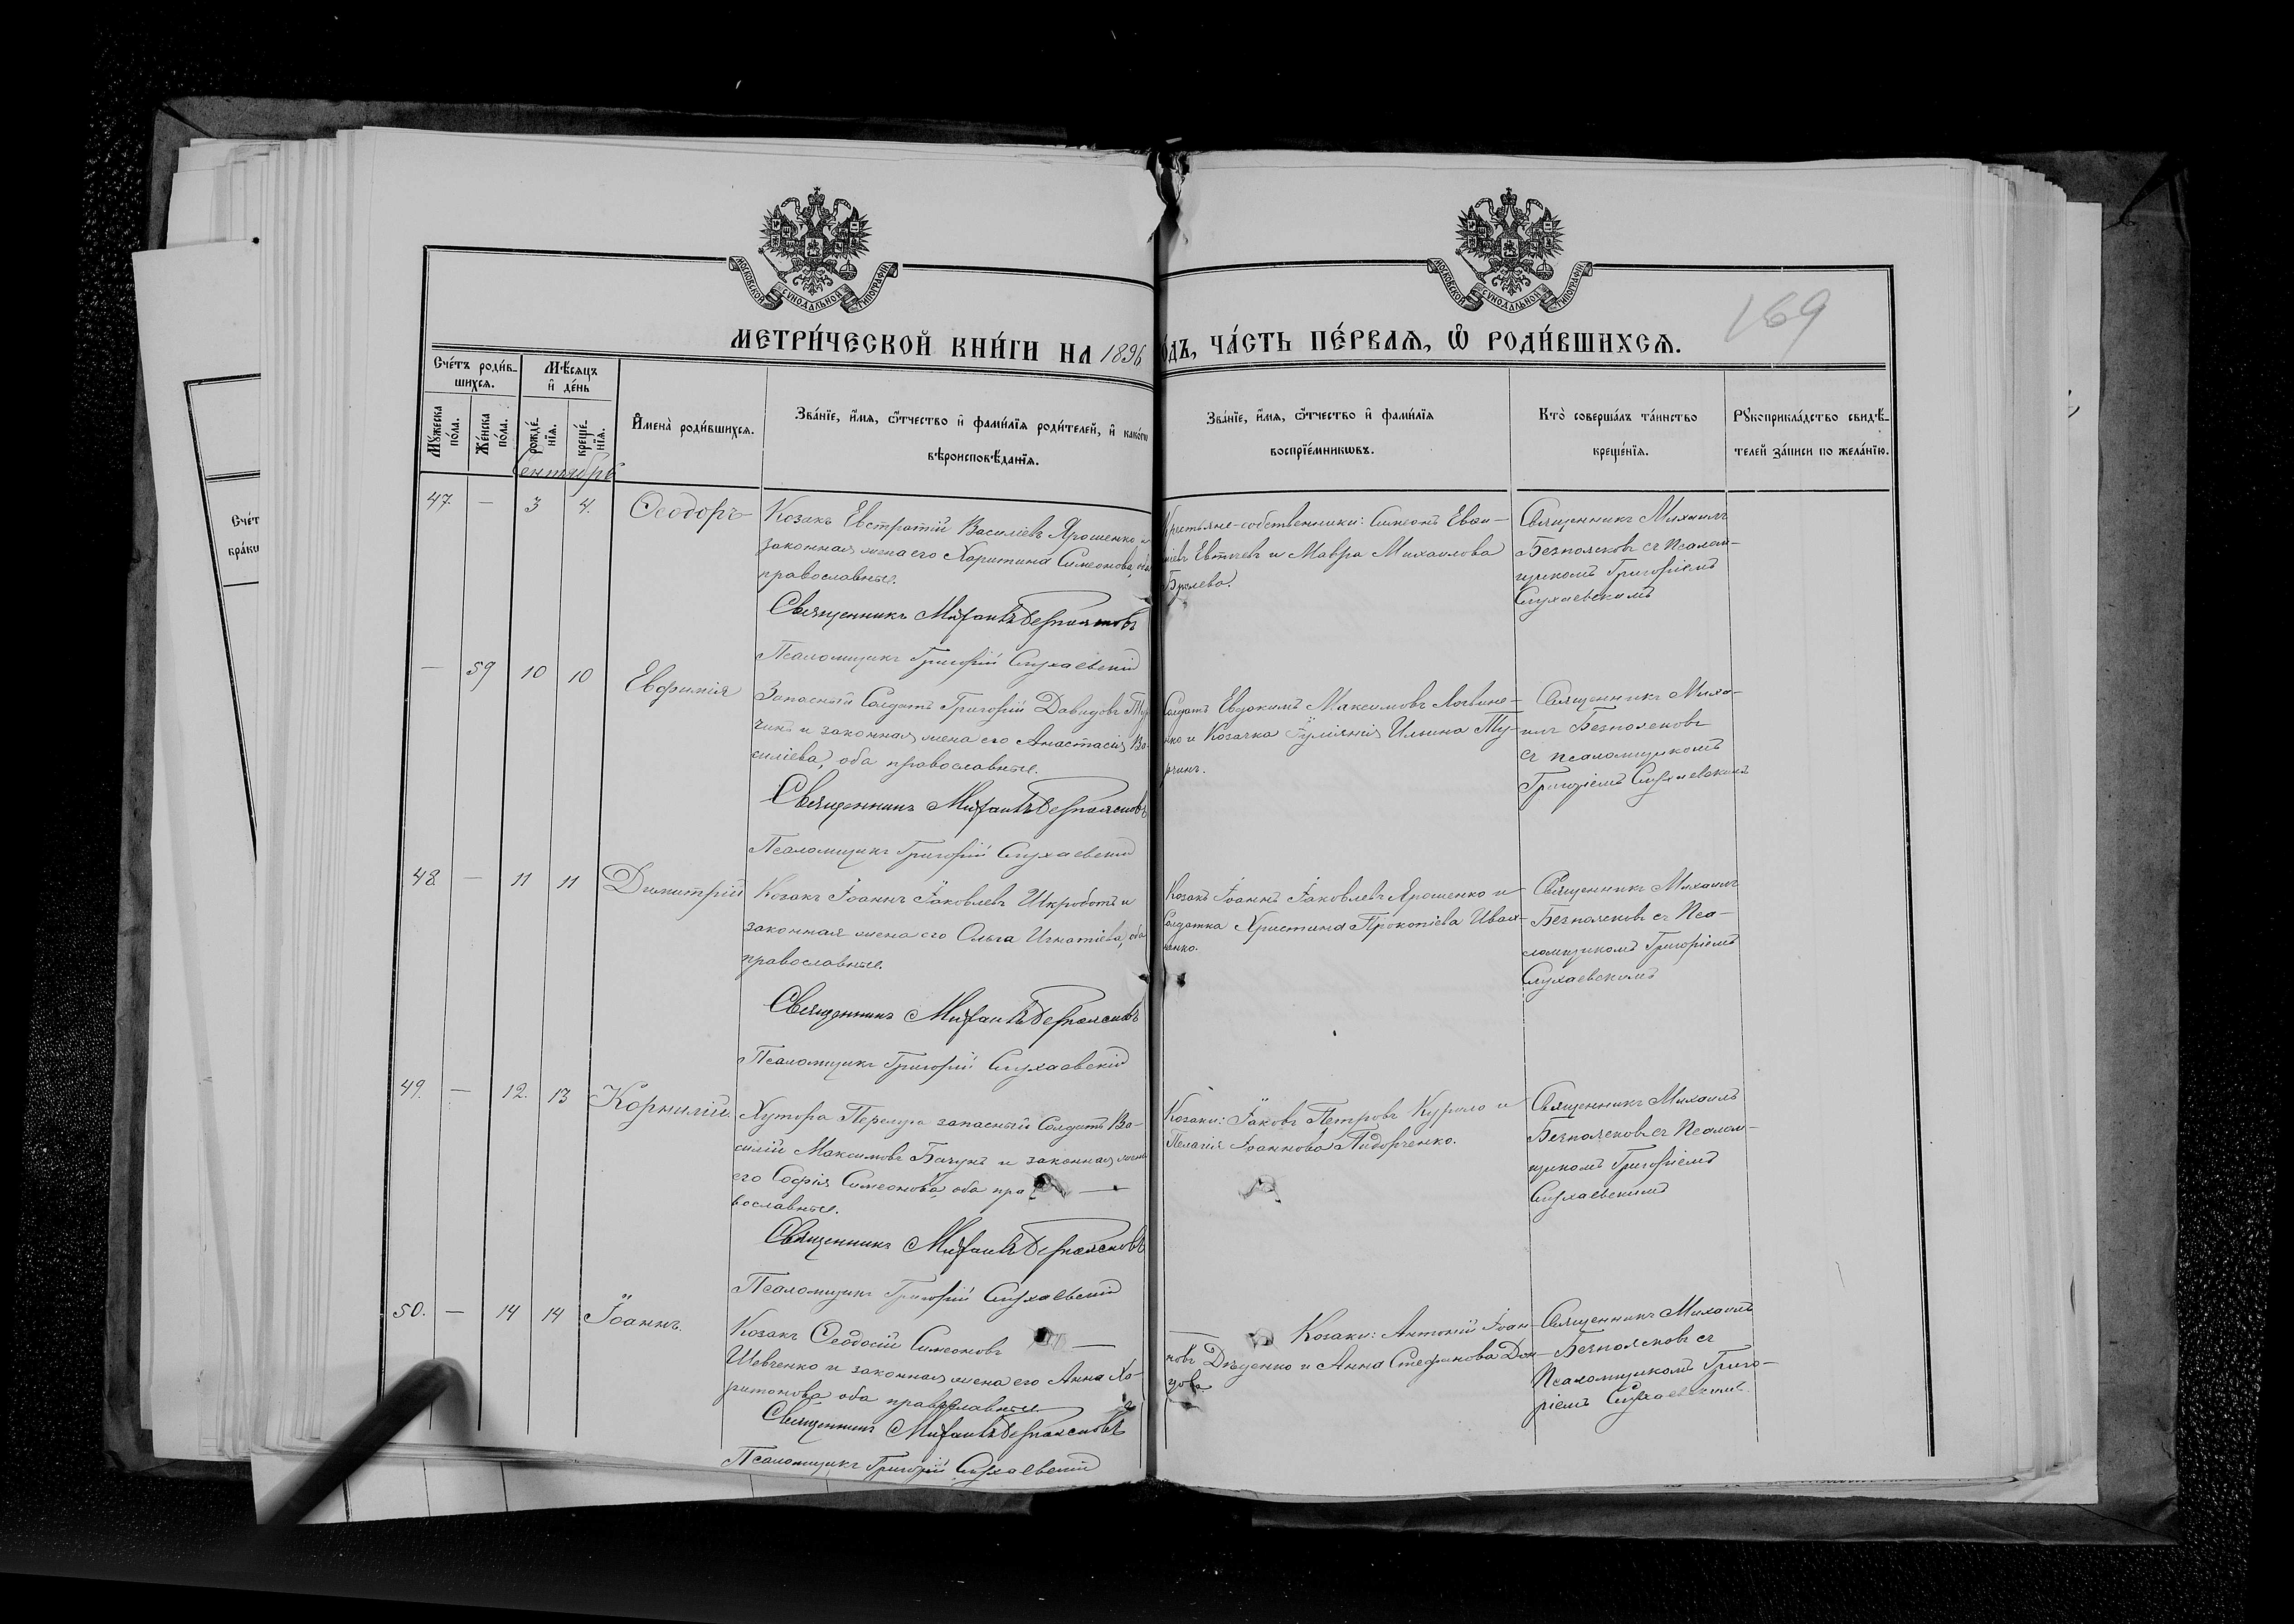 МОСКОВСКОЙ СУНОДАЛЬНОЙ ТИПОГРАФІИ
МОСКОВСКОЙ СУНОДАЛЬНОЙ ТИПОГРАФІИ
169
МЕТРИ́ЧЕСКОЙ КНИ́ГИ НА 1896
ОДЪ, ЧА́СТЬ ПЕ́РВАѦ, Ѡ РОДИ́ВШИХСѦ.
Сче́тъ роди́в-
шихсѧ.
Мꙋ́жеска
по́ла.
Же́нска
по́ла.
Мѣ́сѧцъ
и де́нь
рожде́-
нїѧ.
креще́-
нїѧ.
И҆мена̀ роди́вшихсѧ.
Зва́нїе, и҆́мѧ, ѻ҆́тчество и҆ фами́лїѧ роди́телей, и҆ како́гѡ
вѣроисповѣ́данїѧ.
Зва́нїе, и҆́мѧ, ѻ҆́тчество и҆ фами́лїѧ
воспрїе́мникѡвъ.
Кто̀ соверша́лъ та́инство
креще́нїѧ.
Рꙋкоприкла́дство свидѣ́-
телей за́писи по жела́нїю.
Сентябрь
47. — 3 4. Ѳеодоръ
Козакъ Евстратій Василіевъ Ярошенко и
законная жена его Харитина Симеонова, оба
православные.
Священникъ Михаилъ Безпоясковъ
Псаломщикъ Григорій Слухаевскій
Крестьяне-собственники: Симеонъ
Евтиевъ и Мавра Михаилова
Священникъ Михаилъ
Безпоясковъ съ Псалом-
щикомъ Григоріемъ
Слухаевскимъ
— 59 10 10 Евфимія
Запасный Солдатъ Григорій Давидовъ Тур
чинъ и законная жена его Анастасія Ва-
силіева, оба православные.
Священникъ Михаилъ Безпоясковъ
Псаломщикъ Григорій Слухаевскій
Солдатъ Евдокимъ Максимовъ Логвине-
нко и Козачка Іуліянія Ильина Ту-
рчинъ.
Священникъ Миха-
илъ Безпоясковъ
съ псаломщикомъ
Григоріемъ Слухаевскимъ
48 — 11 11 Димитрій
Козакъ Іоаннъ Іаковлевъ Шкроботъ и
законная жена его Ольга Игнатіева, оба
православные.
Священникъ Михаилъ Безпоясковъ
Псаломщикъ Григорій Слухаевскій
Козакъ Іоаннъ Іаковлевъ Ярошенко и
Солдатка Христина Прокопіева Иван-
ченко.
Священникъ Михаилъ
Безпоясковъ съ Пса-
ломщикомъ Григоріемъ
Слухаевскимъ
49. — 12. 13 Корнилій.
Хутора запасный Солдатъ Ва-
силій Максимовъ Бачунъ и законная жена
его Софія Симеонова, оба пра —
вославные.
Священникъ Михаилъ Безпоясковъ
Псаломщикъ Григорій Слухаевскій
Козаки: Іаковъ Петровъ Курило и
Пелагія Іоаннова Пидорченко.
Священникъ Михаилъ
Безпоясковъ съ Псалом-
щикомъ Григоріемъ
Слухаевскимъ
50. — 14 14 Іоаннъ.
Козакъ Ѳеодосій Симеоновъ —
Шевченко и законная жена его Анна Ха-
ритонова, оба православные.
Священникъ Михаилъ Безпоясковъ
Псаломщикъ Григорій Слухаевскій
Козаки: Антоній Іоан-
новъ Дяденко и Анна Стефанова Дон-
цова
Священникъ Михаилъ
Безпоясковъ съ
Псаломщикомъ Григо-
ріемъ Слухаевскимъ.